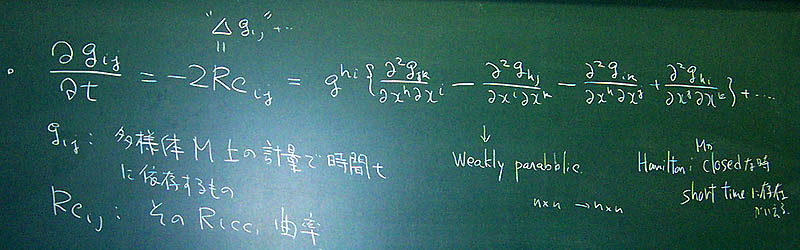 "△ g_{ij}" + ...
||
∂g_{ij}/∂t = -2Rc_{ij} = g^{hi} { ∂²g_{jk}/∂x^h∂x^i - ∂²g_{hj}/∂x^i∂x^k - ∂²g_{ik}/∂x^h∂x^j + ∂²g_{hi}/∂x^j∂x^k } + ....
g_{ij} : 多様体 M 上の計量で時間 t
に依存するもの
Rc_{ij} : その Ricci 曲率
↓
Weakly parabolic.
n×n → n×n
Hamilton : closed な時
short time に存在